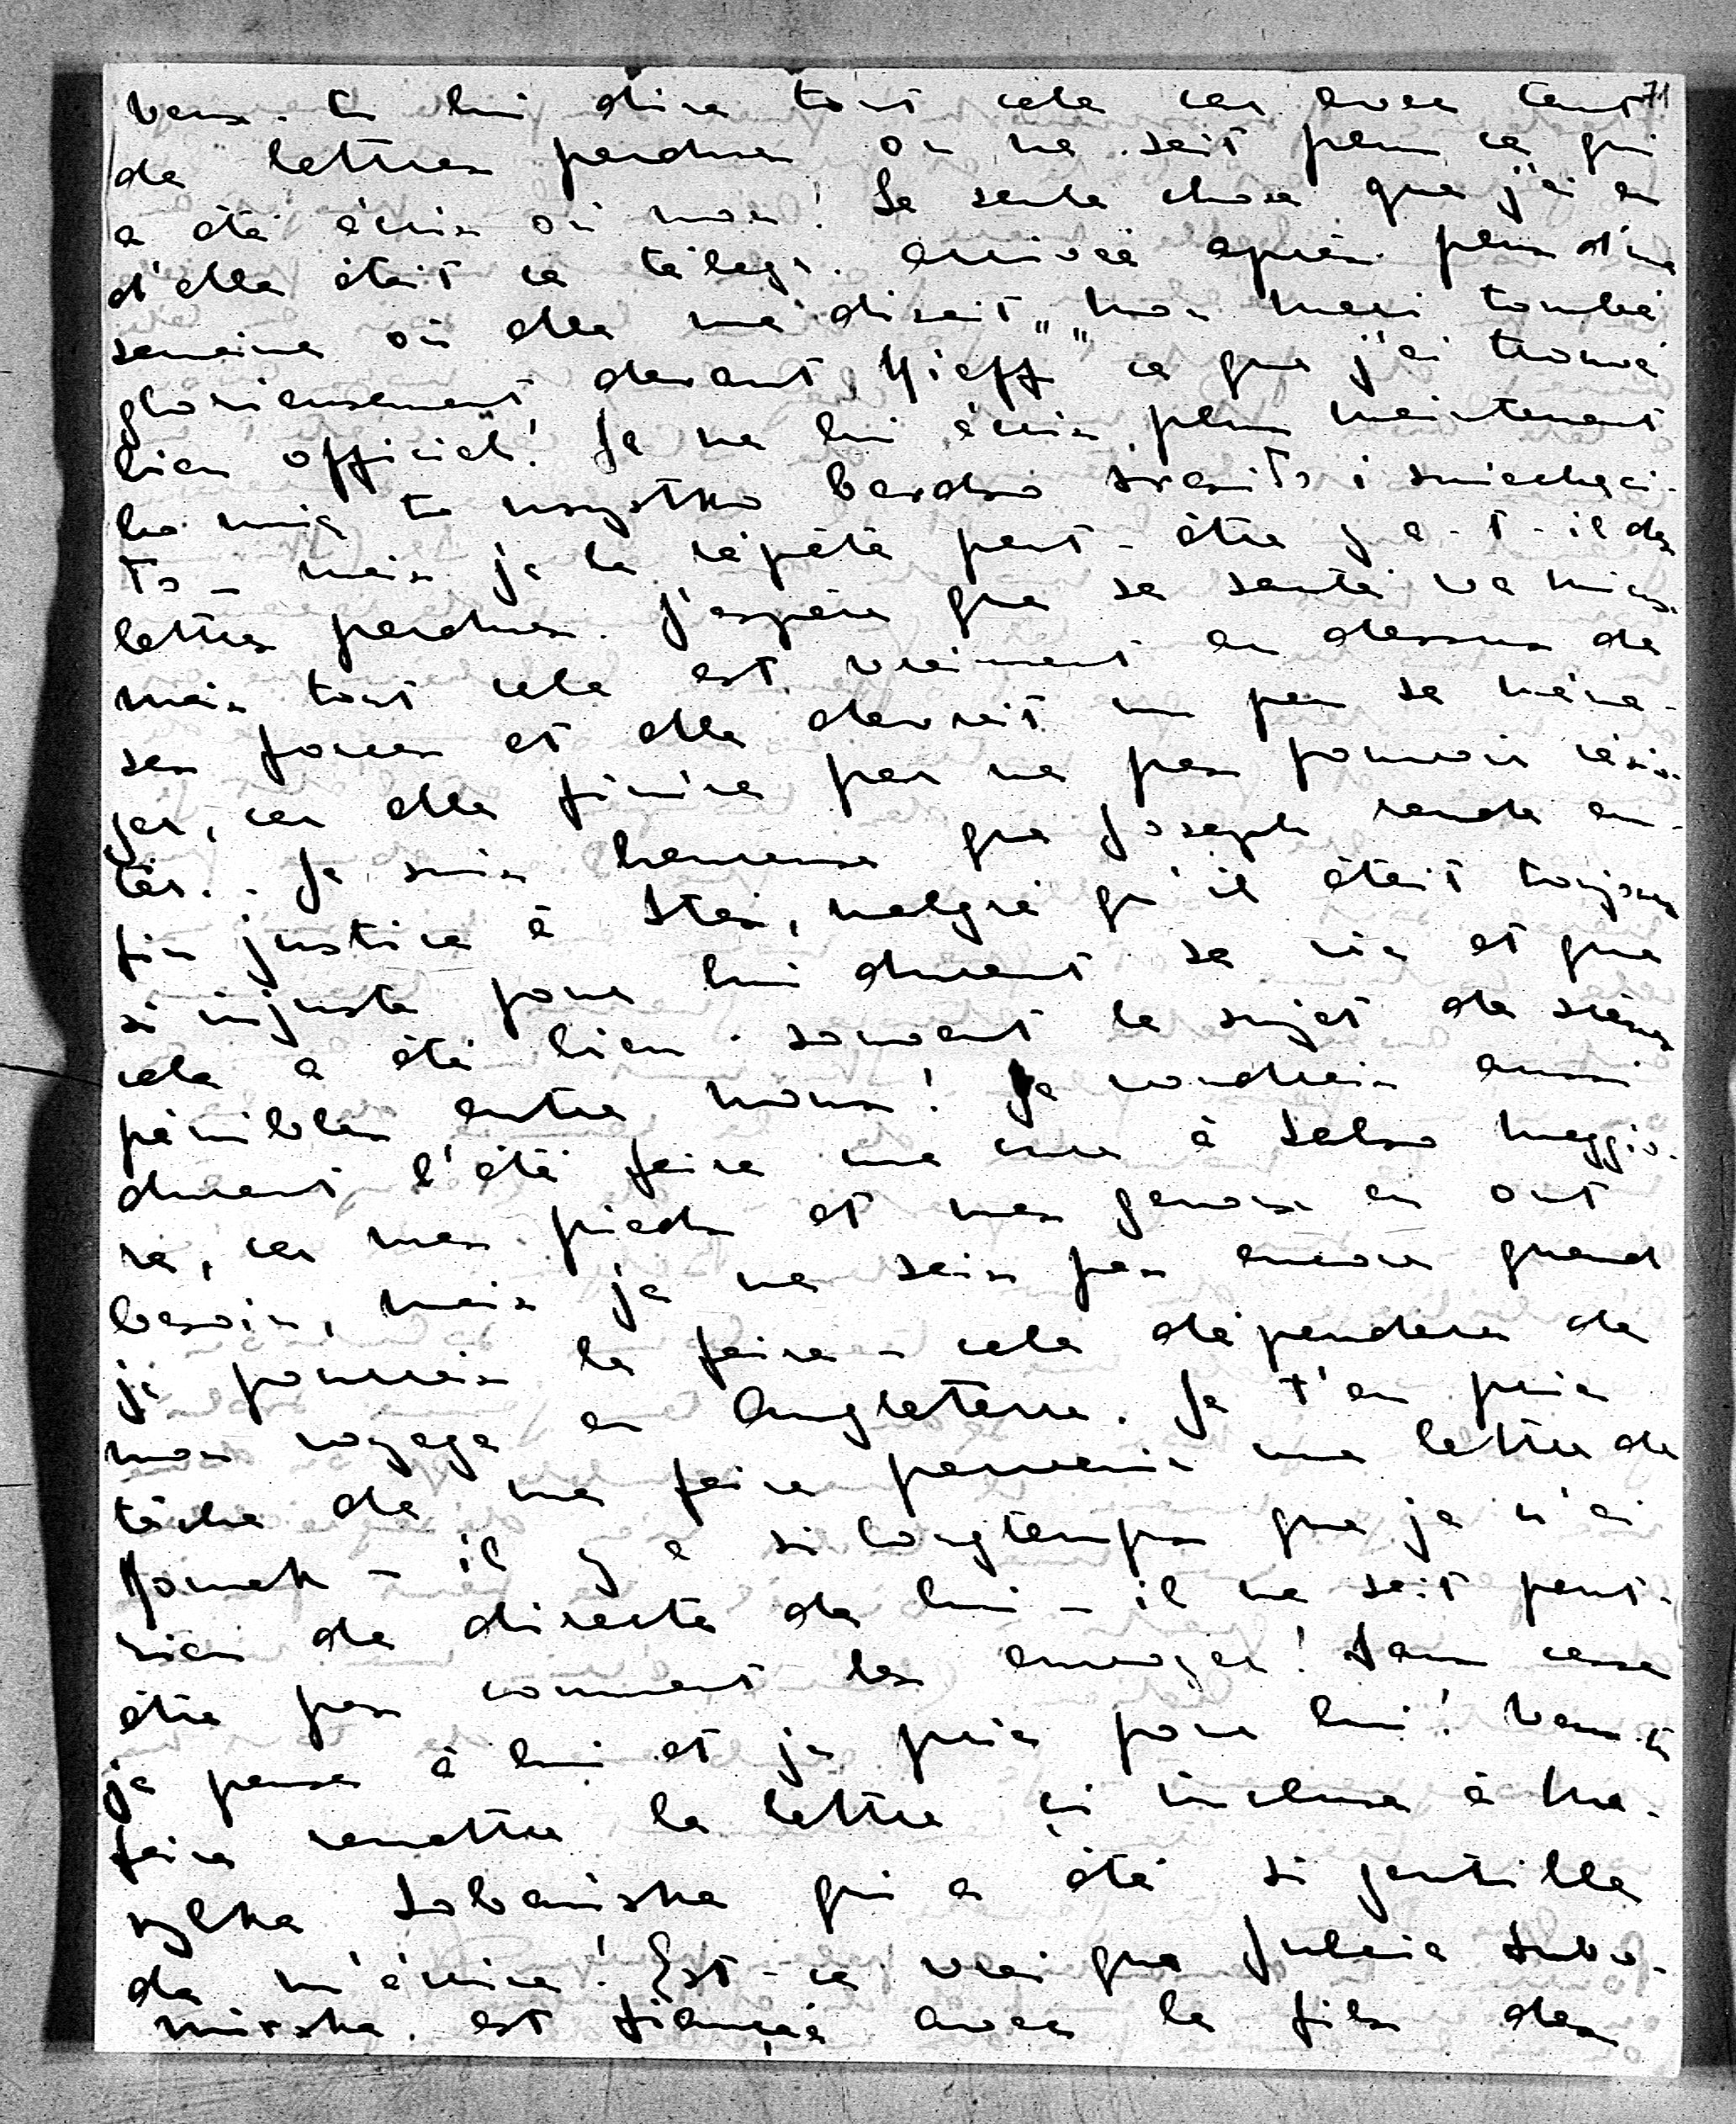 71
veux-tu lui dire tout cela car avec tant
de lettres perdues on ne sait plus ce qui
a été écrit où non! La seule chose que j'ai eu
d'elle était ce télégr. arrivée après plus d'une
semaine où elle me disait "mon mari tombé
glorieusement devant Kieff" ce que j'ai trouvé
bien "officiel"! Je ne lui écris plus maintenant
bo mię to wszystko bardzo zraziło i zniechęci-
ło – mais je le répète peut-être y a-t-il des
lettres perdues. J'espère que sa santé va mieux.
mais tout cela est vraiment au dessus de
ses forces et elle devrait un peu se ména-
ger, car elle finira par ne pas pouvoir résis-
ter.. Je suis heureuse que Joseph rende en-
fin justice à Staś, malgré qu'il était toujours
si injuste pour lui durant sa vie et que
cela a été bien souvent le sujet de scènes
pénibles entre nous! Je voudrais aussi
durant l'été faire une cure à Salso Maggio-
re, car mes pieds et mes genoux en ont
besoin, mais je ne sais pas encore quand
je pourrais la faire – cela dépendera de
mon voyage en Angleterre. Je t'en prie
tâche de me faire parvenir une lettre de
Romek – il y a si longtemps que je n'ai
rien de directe de lui – il ne sait peut-
être pas comment les envoyer! Sans cesse
je pense à lui et je prie pour lui! Veux-tu
faire remettre la lettre ci incluse à Ma-
rylka Sobańska qui a été si gentille
de m'écrire! Est-ce vrai que Julcia Lubo-
mirska est fiancée avec le fils des